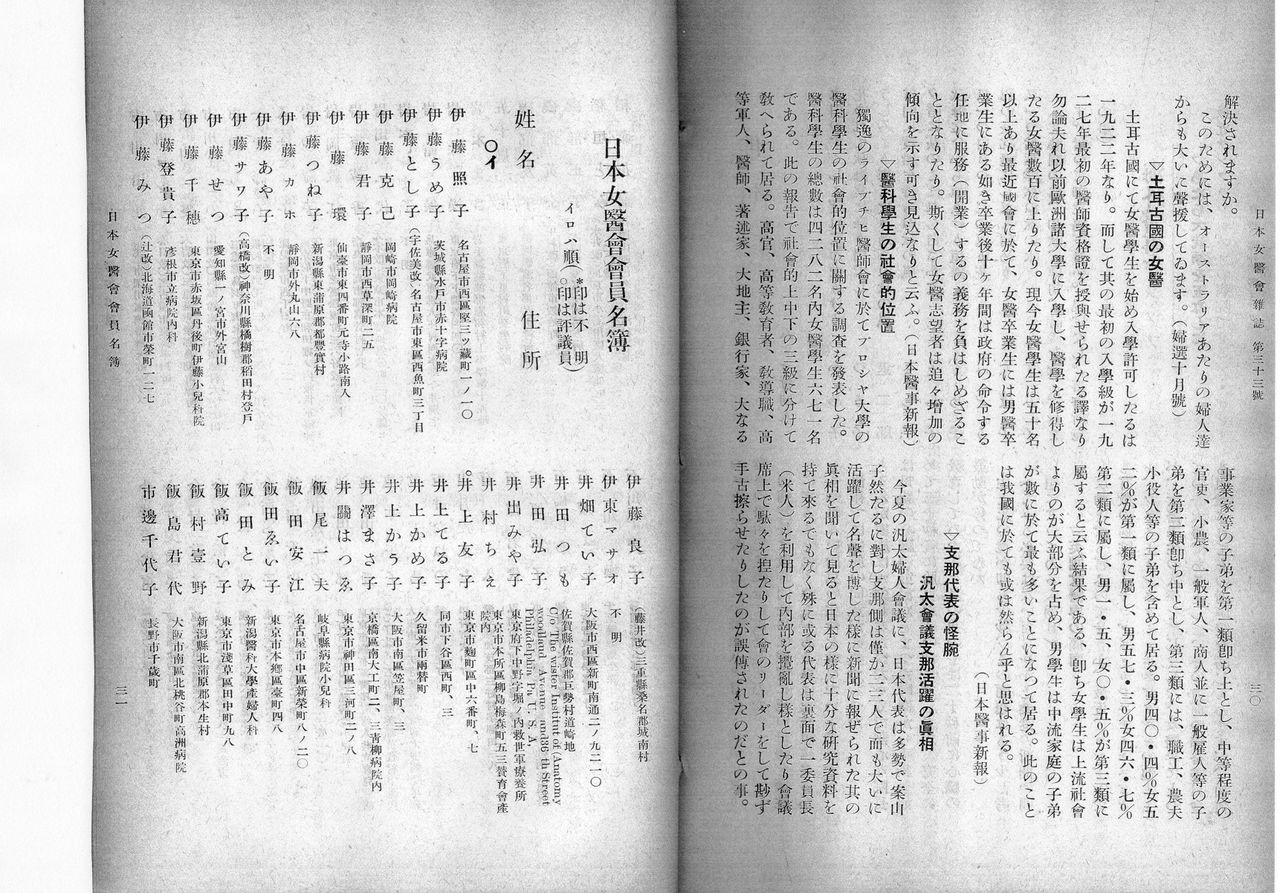 日本女醫會雜誌　第三十三號
三〇
解決されますか。
このためには、オーストラリアあたりの婦人達
からも大いに聲援してゐます。（婦選十月號）
▽土耳古國の女醫
土耳古國にて女醫學生を始め入學許可したるは
一九二二年なり。而して其の最初の入學級が一九
二七年最初の醫師資格證を授與せられたる譯なり
勿論夫れ以前歐洲諸大學に入學し、醫學を修得し
たる女醫數百に上りたり。現今女醫學生は五十名
以上あり最近國會に於て、女醫卒業生には男醫卒
業生にある如き卒業後十ヶ年間は政府の命令する
任地に服務（開業）するの義務を負はしめざるこ
ととなりたり。斯くして女醫志望者は追々增加の
傾向を示す可き見込なりと云ふ。（日本醫事新報）
▽醫科學生の社會的位置
獨逸のライプチヒ醫師會に於てプロシャ大學の
醫科學生の社會的位置に關する調査を發表した。
醫科學生の總數は四二八二名內女醫學生六七一名
である。此の報告で社會的上中下の三級に分けて
敎へられて居る。高官、高等敎育者、敎導職、高
等軍人、醫師、著述家、大地主、銀行家、大なる
事業家等の子弟を第一類卽ち上とし、中等程度の
官吏、小農、一般軍人、商人並に一般雇人等の子
弟を第二類卽ち中とし、第三類には、職工、農夫
小役人等の子弟を含めて居る。男四〇・四％女五
二％が第一類に屬し、男五七・三％女四六・七％
第二類に屬し、男一・五、女〇・五％が第三類に
屬すると云ふ結果である、卽ち女學生は上流社會
よりのが大部分を占め、男學生は中流家庭の子弟
が數に於て最も多いことになつて居る。此のこと
は我國に於ても或は然らん乎と思はれる。
（日本醫事新報）
▽支那代表の怪腕
汎太會議支那活躍の眞相
今夏の汎太婦人會議に、日本代表は多勢で案山
子然たるに對し支那側は僅か二三人で而も大いに
活躍して名聲を博した樣に新聞に報ぜられた其の
眞相を聞いて見ると日本の樣に十分な硏究資料を
持て來るでもなく殊に或る代表は裏面で一委員長
（米人）を利用して內部を攪亂し樣としたり會議
席上で駄々を揑たりして會のリーダーをして尠ず
手古擦らせたりしたのが誤傳されたのだとの事。
日本女醫會會員名簿
イロハ順（*印は不　明
○印は評議員）
姓名　住所
○イ
伊藤照子　名古屋市西區竪三ッ藏町一ノ一〇
伊藤うめ子　茨城縣水戶市赤十字病院
伊藤とし子　（宇佐美改）名古屋市東區西魚町三丁目
伊藤克己　岡崎市岡崎病院
伊藤君子　靜岡市西草深町二五
伊藤環　仙臺市東四番町元寺小路南入
伊藤つね子　新潟縣東蒲原郡都豐實村
伊藤カホ　靜岡市外丸山六八
伊藤あや子　不明
伊藤サワ子　（高橋改）神奈川縣橘樹郡稻田村登戶
伊藤せつ　愛知縣一ノ宮市外宮山
伊藤千穗　東京市赤坂區丹後町伊藤小兒科院
伊藤登貴子　彥根市立病院內科
伊藤みつ　（辻改）北海道函館市榮町一二七
伊藤良子　（藤井改）三重縣桑名郡城南村
伊東マサオ　不明
井畑てい子　大阪市西區新町南通二ノ九二一〇
井田つも　佐賀縣佐賀郡巨勢村道崎地
井田弘子　C/o The wister Institut of (Anatomy
woodland Avenue and36-th Street
Philadelphia Pa U. S. A.
井出みや子　東京府下中野字堀ノ內救世軍療養所
井村ちえ　東京市本所區柳島梅森町五三賛育會產
院內
○井上友子　東京市麴町區中六番町、七
井上てる子　同市下谷區西町、三
井上かめ子　久留米市兩替町
井上かう子　大阪市南區笠屋町、三
井澤まさ子　京橋區南大工町二、三青柳病院內
井關はつゑ　東京市神田區三河町二ノ八
飯尾一夫　岐阜縣病院小兒科
飯田安江　名古屋市中區新榮町八ノ二〇
飯田ゑい子　東京市本鄕區臺町四八
飯田とみ　新潟醫科大學產婦人科
飯高てい子　東京市淺草區田中町九八
飯村壹野　新潟縣北蒲原郡本生村
飯島君代　大阪市南區北桃谷町高洲病院
市邊千代子　長野市千歲町
日本女醫會會員名簿
三一